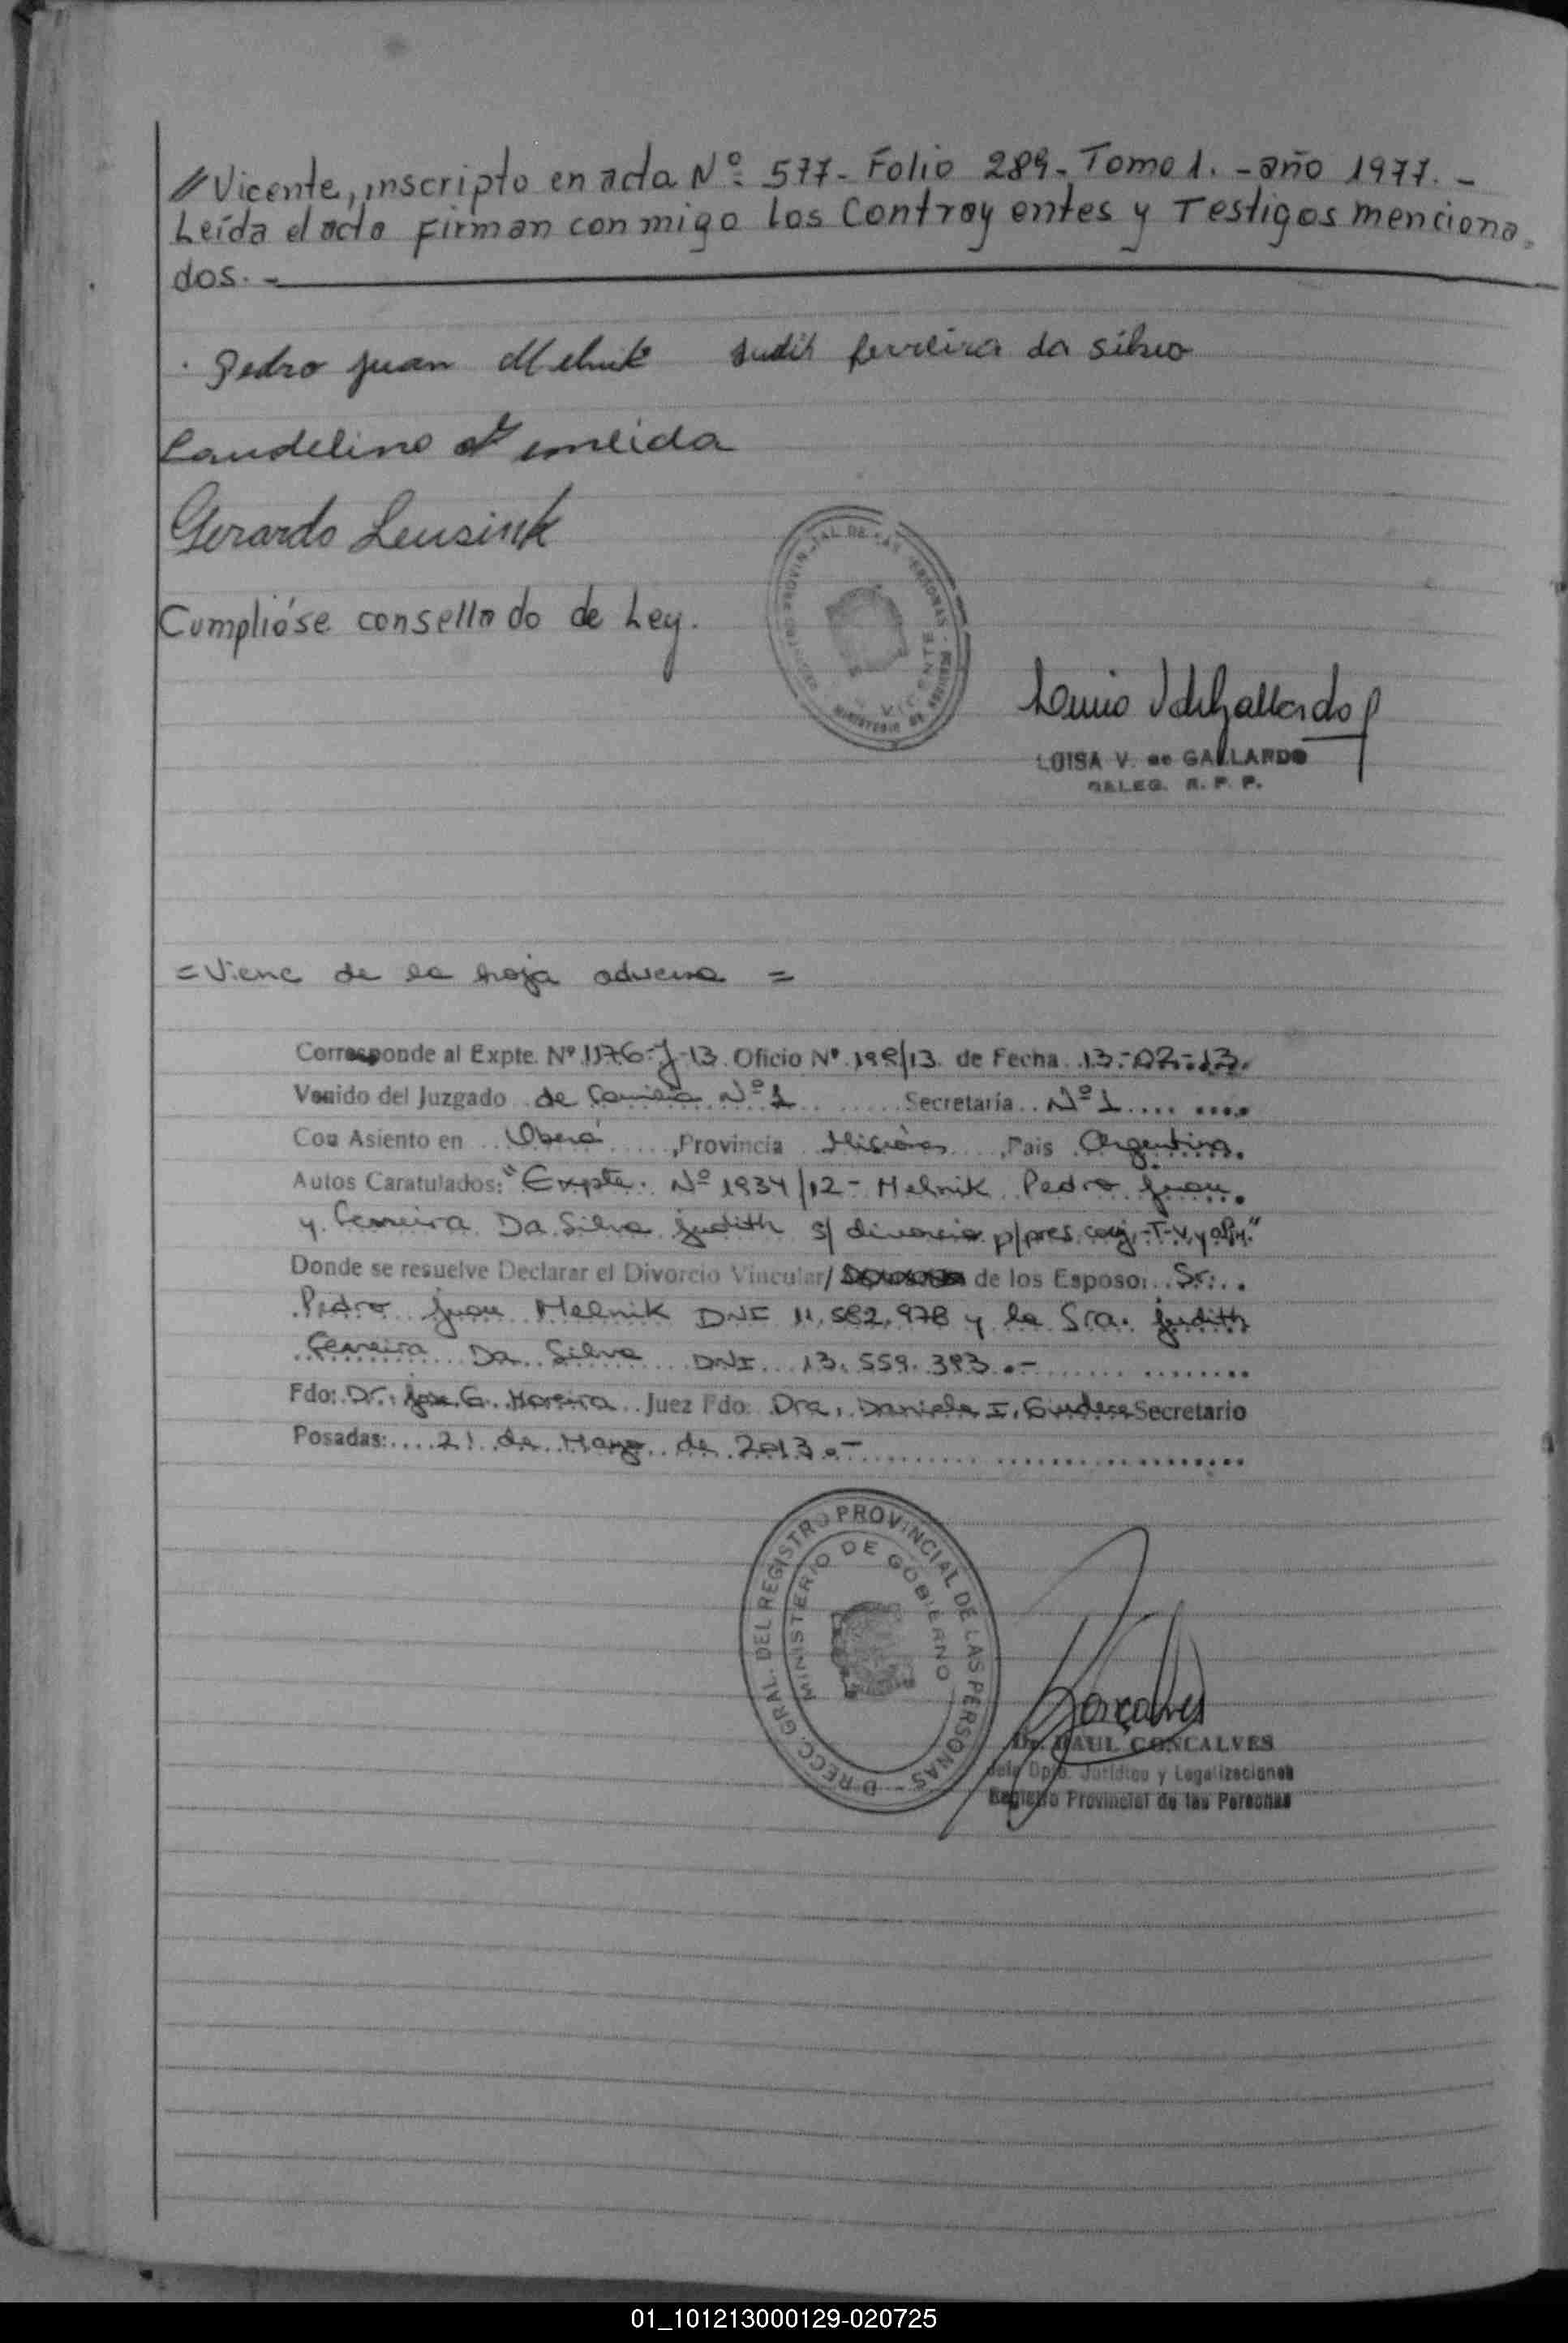 // Vicente, inscripto en acta Nº: 577 - Folio 289 - Tomo 1. - año 1977. -
Leída el acta Firman conmigo los Contrayentes y Testigos menciona-
dos. -
Pedro Juan Melnik Judit ferreira da silva
Gerardo Leusink
Cumplióse con sellado de Ley.
REGISTRO PROVINCIAL DE LAS PERSONAS - MINISTERIO DE
VICENTE
LUISA V. de GALLARDO
DELEG. R. P. P.
= Viene de la hoja adversa =
Corresponde al Expte. Nº 1176-J-13. Oficio Nº 198/13. de Fecha 13-02-13.
Venido del Juzgado de Familia Nº 1 Secretaría Nº 1
Con Asiento en Oberá, Provincia Misiones, Pais Argentina.
Autos Caratulados: "Expte. Nº 1934/12 - Melnik Pedro Juan
y Ferreira Da Silva Judith s/ divorcio p/pres. conj.
Donde se resuelve Declarar el Divorcio Vincular/ de los Esposo: Sr.
Pedro Juan Melnik DNI 11.582.978 y la Sra. Judith
Ferreira Da Silva DNI 13.559.383.-
Fdo: Dr. Jose G. Moreira Juez Fdo: Dra. Daniela I. Secretario
Posadas: 21 de Marzo de 2013.-
DIRECC. GRAL. DEL REGISTRO PROVINCIAL DE LAS PERSONAS -
MINISTERIO DE GOBIERNO
Goncalves
Dr. RAUL GONCALVES
Jefe Dpto. Jurídico y Legalizaciones
Registro Provincial de las Personas
01_101213000129-020725